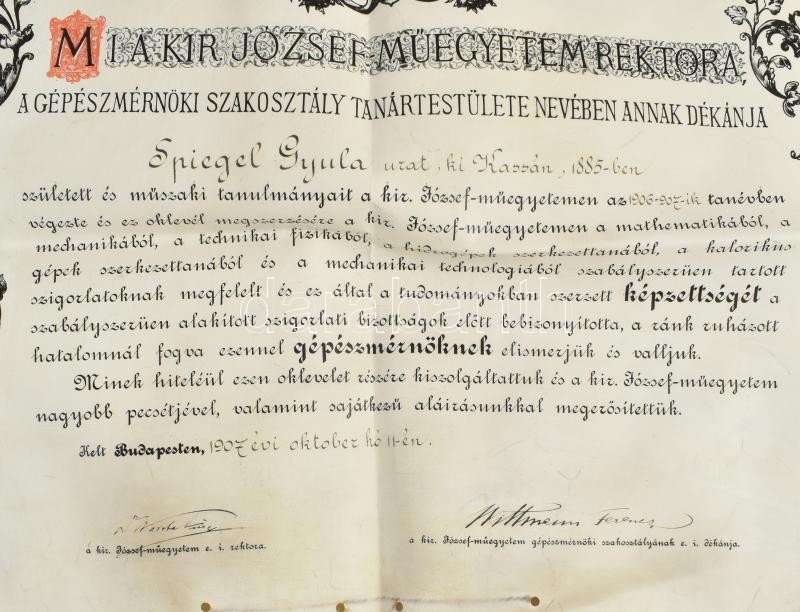 MI A KIR JÓZSEF-MŰEGYETEM REKTORA,
A GÉPÉSZMÉRNÖKI SZAKOSZTÁLY TANÁRTESTÜLETE NEVÉBEN ANNAK DÉKÁNJA
Spiegel Gyula urat, ki Kassán, 1885-ben
született és műszaki tanulmányait a kir. József-műegyetemen az 1906-907-ik tanévben
végezte és ez oklevél megszerzésére a kir. József-műegyetemen a mathematikából, a
mechanikából, a technikai fizikából, a hidrogépek szerkezettanából, a kalorikus
gépek szerkezettanából és a mechanikai technologiából szabályszerüen tartott
szigorlatoknak megfelelt és ez által a tudományokban szerzett képzettségét a
szabályszerüen alakított szigorlati bizottságok előtt bebizonyította, a ránk ruházott
hatalomnál fogva ezennel gépészmérnöknek elismerjük és valljuk.
Minek hiteléül ezen oklevelet részére kiszolgáltattuk és a kir. József-műegyetem
nagyobb pecsétjével, valamint sajátkezű aláirásunkkal megerősítettük.
Kelt Budapesten, 1907 évi oktober hó 11-én.
Wittmann Ferencz
a kir. József-műegyetem e. i. rektora.
a kir. József-műegyetem gépészmérnöki szakosztályának e. i. dékánja.
darabanth